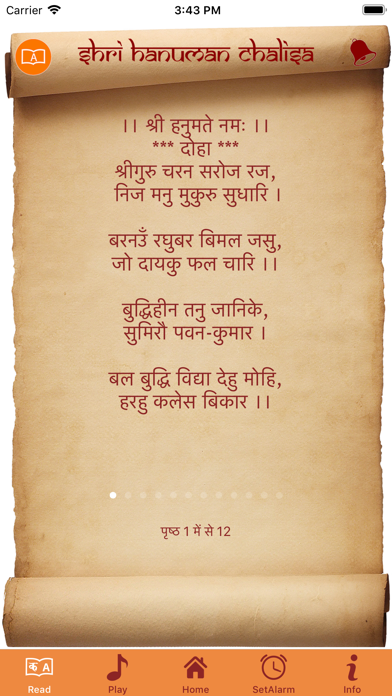 Carrier 3:43 PM
A
Shri Hanuman Chalisa
।। श्री हनुमते नमः ।।
*** दोहा ***
श्रीगुरु चरन सरोज रज,
निज मनु मुकुरु सुधारि ।
बरनउँ रघुबर बिमल जसु,
जो दायकु फल चारि ।।
बुद्धिहीन तनु जानिके,
सुमिरौ पवन-कुमार ।
बल बुद्धि विद्या देहु मोहि,
हरहु कलेस बिकार ।।
पृष्ठ 1 में से 12
क A
Read Play Home SetAlarm Info